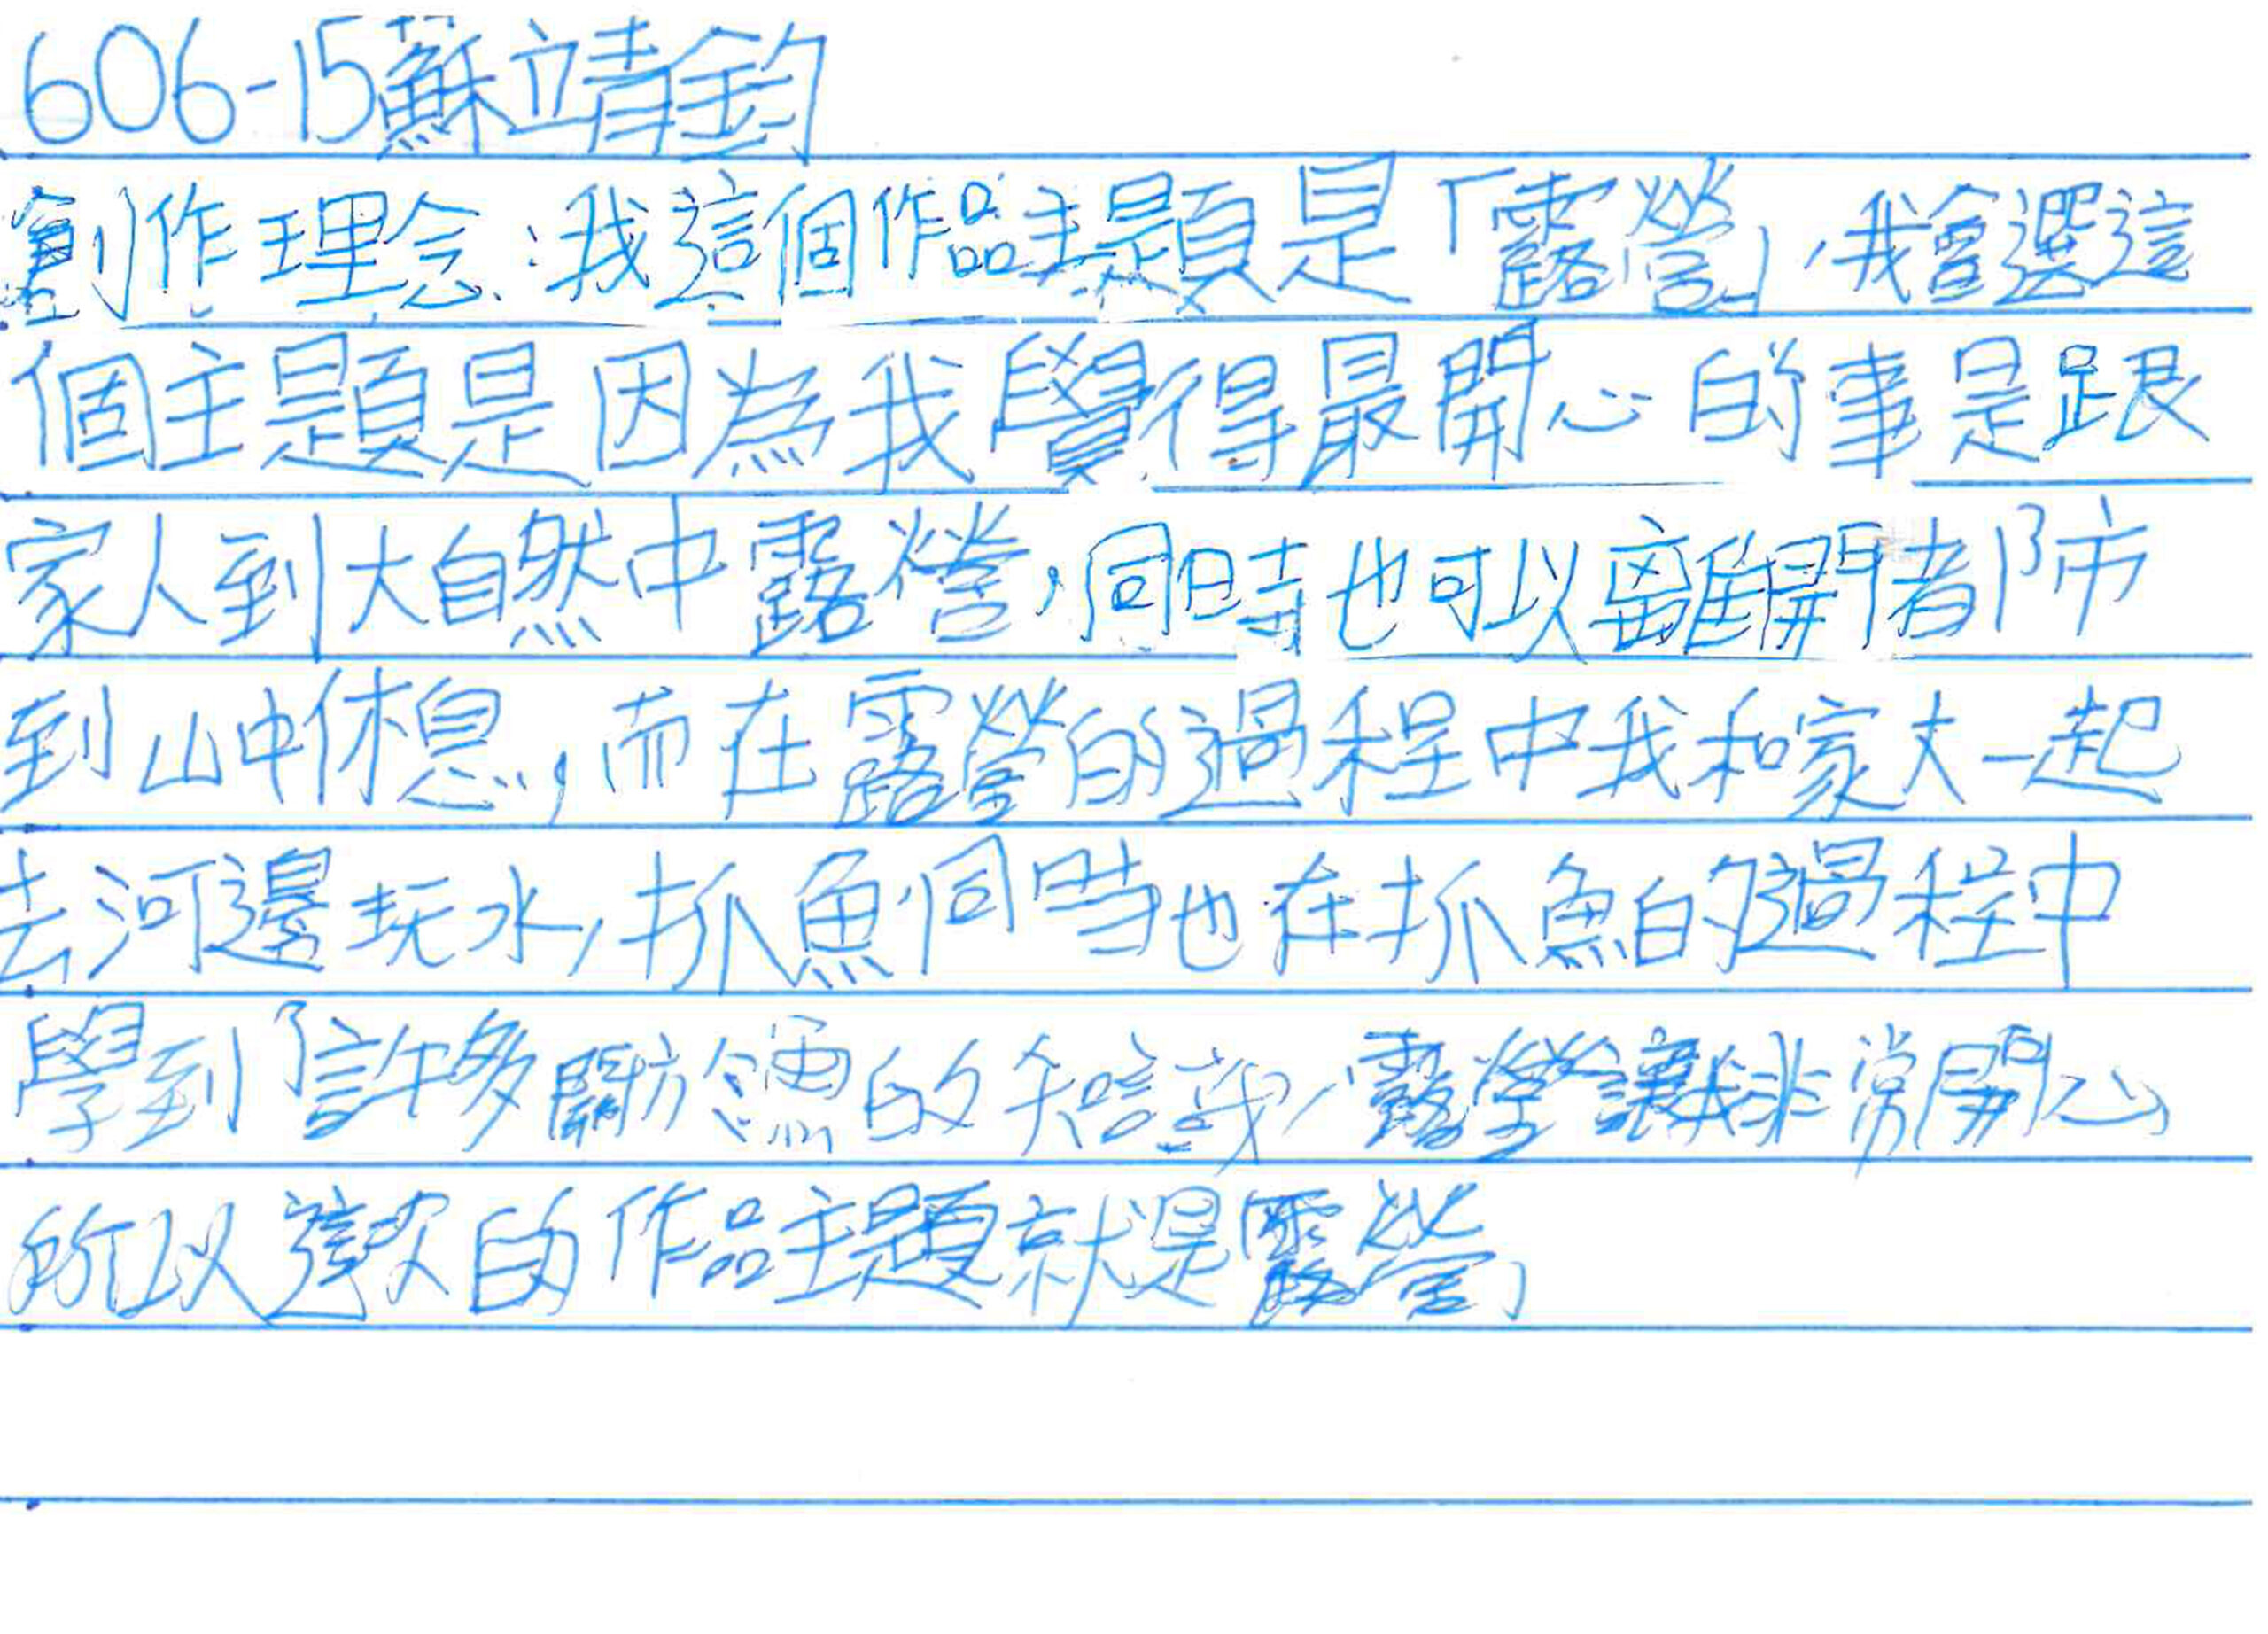 606-15蘇靖鈞
創作理念:我這個作品主題是「露營」,我會選這
個主題是因為我覺得最開心的事是跟
家人到大自然中露營,同時也可以離開都市
到山中休息,而在露營的過程中我和家人一起
去河邊玩水,抓魚,同時也在抓魚的過程中
學到了許多關於魚的知識,露營讓我非常開心,
所以這次的作品主題就是露營